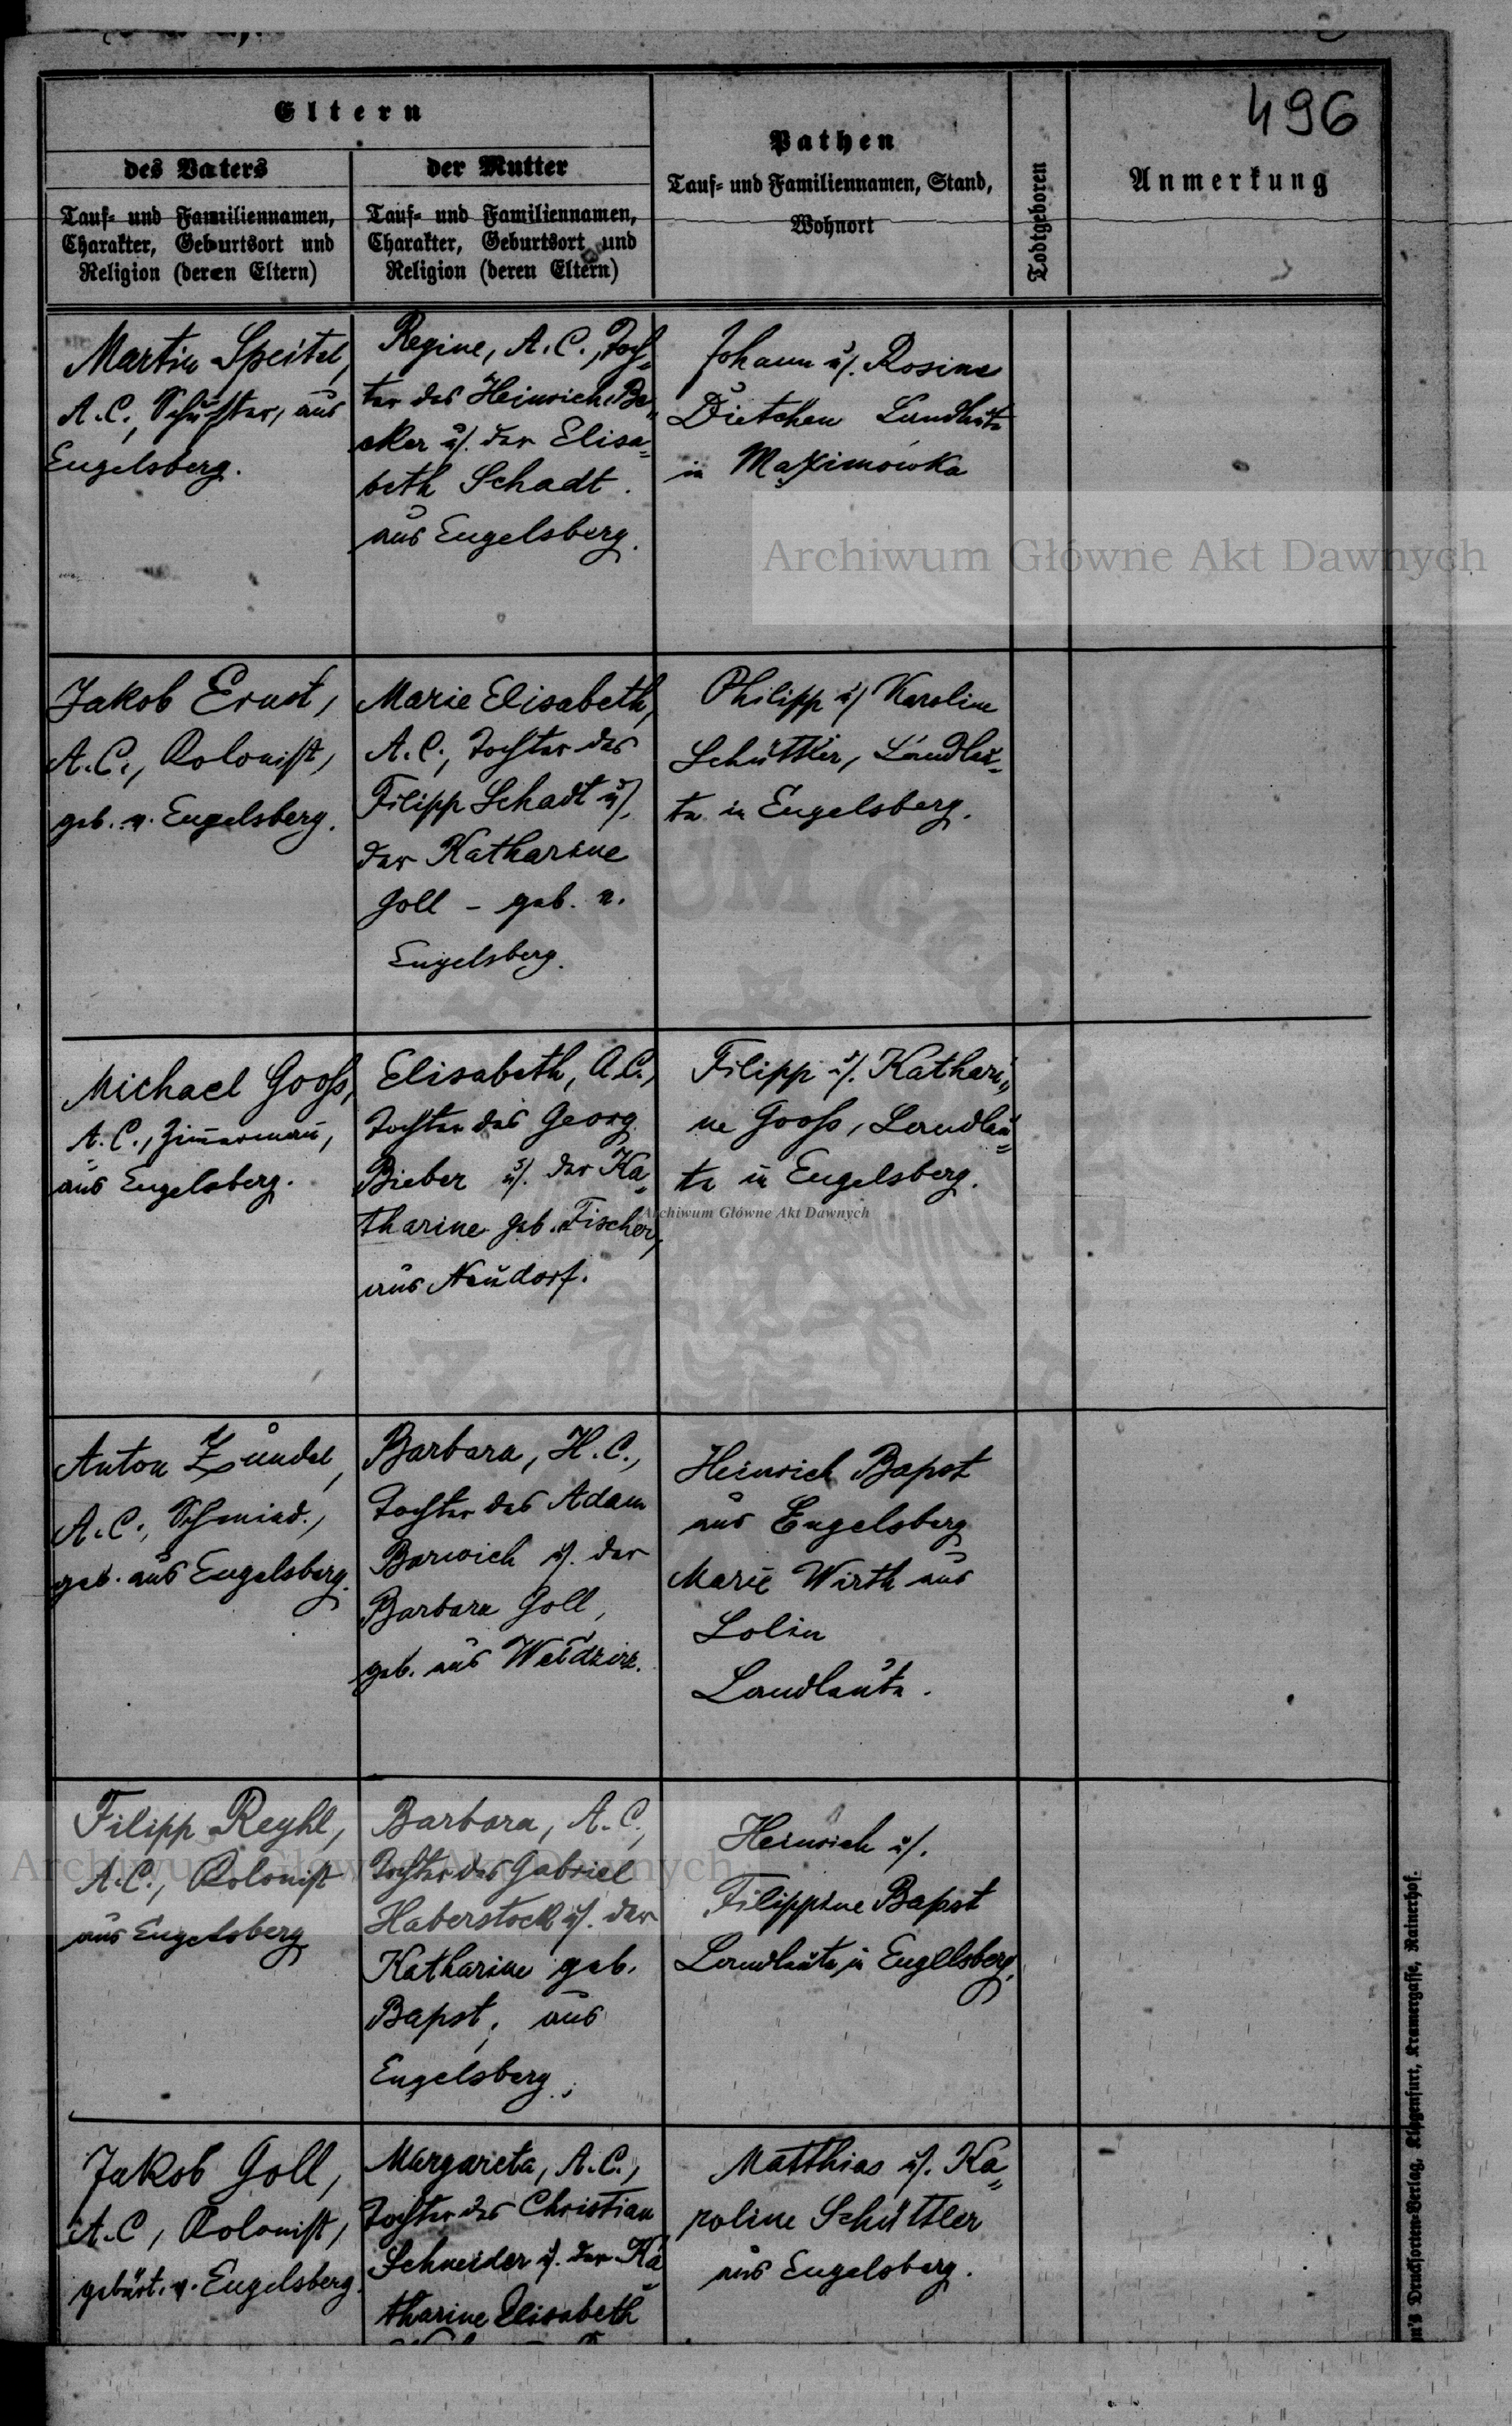 496
Eltern
des Vaters
der Mutter
Pathen
Tauf- und Familiennamen, Stand,
Wohnort
Todtgeboren
Anmerkung
Tauf- und Familiennamen,
Charakter, Geburtsort und
Religion (deren Eltern)
Tauf- und Familiennamen,
Charakter, Geburtsort und
Religion (deren Eltern)
Martin Speitel,
A.C., Schuster, aus
Engelsberg.
Regine, A.C., Toch=
ter des Heinrich Be=
cker u. der Elisa=
beth Schadt.
aus Engelsberg.
Johann u. Rosine
Dietchen Landleute
in Maximowka
Archiwum Główne Akt Dawnych
Jakob Ernst,
A.C., Kolonist,
geb. v. Engelsberg.
Marie Elisabeth,
A.C., Tochter des
Filipp Schadt u.
der Katharine
Goll - geb. v.
Engelsberg.
Philipp u. Karoline
Schüttler, Landleu=
te in Engelsberg.
Michael Gooß,
A.C., Zimmermann,
aus Engelsberg.
Elisabeth, A.C.,
Tochter des Georg
Bieber u. der Ka=
tharine geb. Fischer,
aus Neudorf.
Filipp u. Kathari=
ne Gooß, Landleu=
te in Engelsberg.
Archiwum Główne Akt Dawnych
Anton Zundel,
A.C., Schmied.,
geb. aus Engelsberg.
Barbara, H.C.,
Tochter des Adam
Barwich u. der
Barbara Goll,
geb. aus Weldzirz.
Heinrich Bapst
aus Engelsberg
Marie Wirth aus
Dolin
Landleute.
Filipp Reyhl,
A.C., Kolonist
aus Engelsberg
Barbara, A.C.,
Tochter des Gabriel
Haberstock u. der
Katharine geb.
Bapst, aus
Engelsberg.
Heinrich u.
Filippine Bapst
Landleute in Engelsberg.
Archiwum Główne Akt Dawnych
Jakob Goll,
A.C, Kolonist,
gebürt. v. Engelsberg.
Margareta, A.C.,
Tochter des Christian
Schneider u. der Ka=
tharine Elisabeth
Matthias u. Ka=
roline Schüttler
aus Engelsberg.
Drucksorten-Verlag, Klagenfurt, Kramergasse, Rainerhof.